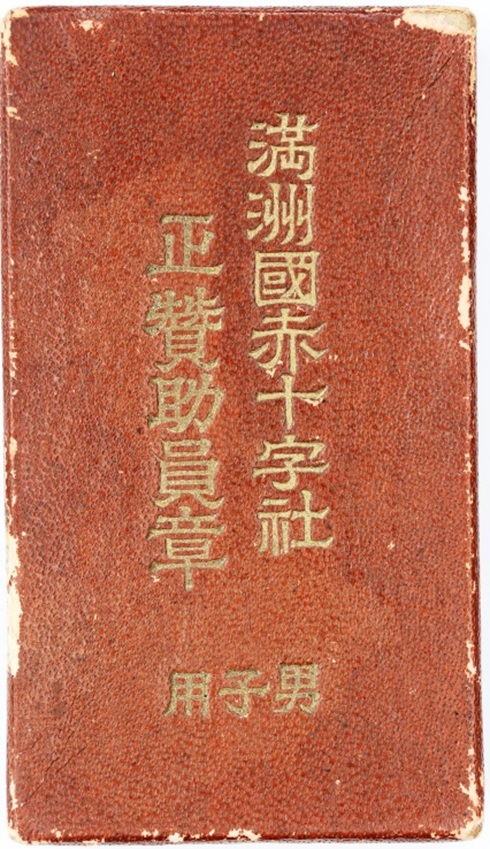 満洲國赤十字社
正贊助員章
男子用